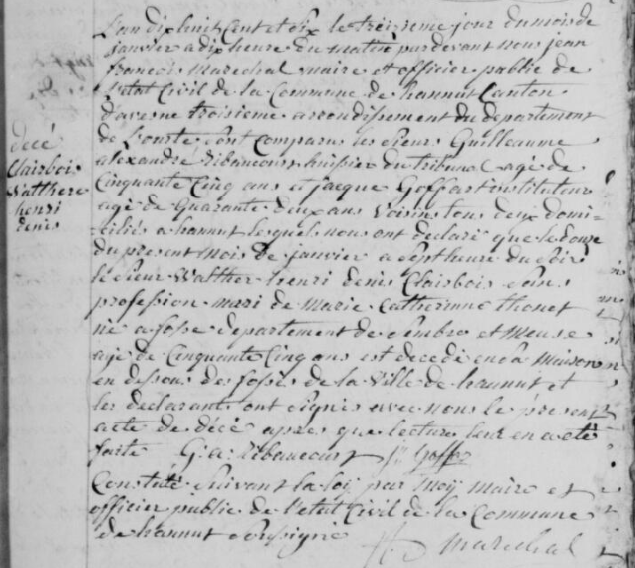 L'an dix huit Cent et dix le treiseme jour du mois de
janvier a dix heure du matin pardevant nous jean
françois Marechal maire et officier public de
l'etat Civil de la Commune de hannut Canton
d'avesne troisieme arrondissement du departement
de l'ourte sont comparus les sieurs Guilleaume
alexandre ribaucourt huissier du tribunal agé de
Cinquante Cinq ans et jacque Goffart instituteur
agé de Quarante deux ans Voisins tous deux domi-
ciliés a hannut lesquels nous ont declaré que le douse
du present mois de janvier a sept heure du soir
le sieur Walther henri denis Clairbois sans
profession mari de marie Catherinne thonet
né a fosse departement de sambre et meuse
agé de Cinquante Cinq ans est decedé en sa maison
en dessous des fosses de la Ville de hannut et
les declarants ont signés avec nous le present
acte de décé apres que lecture leur en a eté
faite G: a: ribaucourt J: Goffar
Constaté suivant la loÿ par moÿ maire et
officier public de l'etat Civil de la Commune
de hannut soussigné
Marechal
decé
Clairbois
Walthere
henri
denis